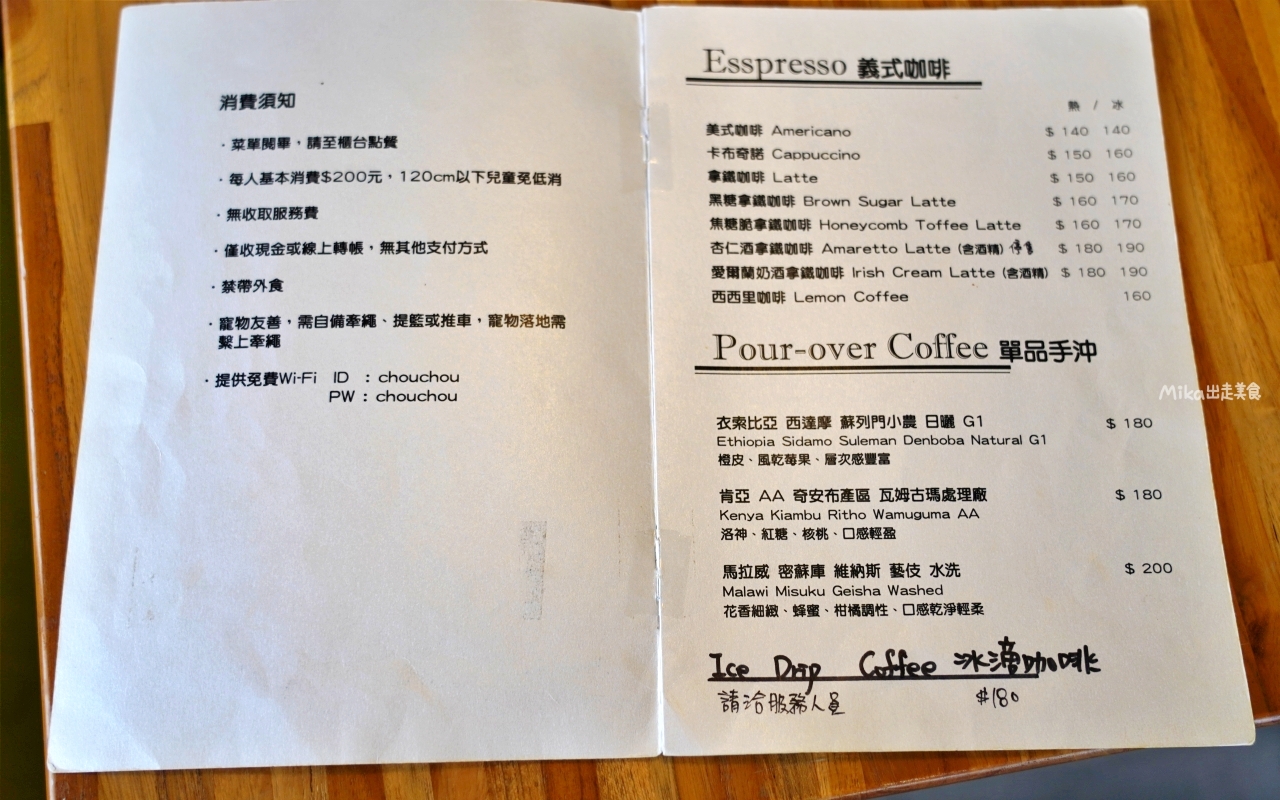 消費須知
・菜單閱畢，請至櫃台點餐
・每人基本消費$200元，120cm以下兒童免低消
・無收取服務費
・僅收現金或線上轉帳，無其他支付方式
・禁帶外食
・寵物友善，需自備牽繩、提籃或推車，寵物落地需
繫上牽繩
・提供免費Wi-Fi ID : chouchou
PW : chouchou
Esspresso 義式咖啡
熱 / 冰
美式咖啡 Americano $ 140 140
卡布奇諾 Cappuccino $ 150 160
拿鐵咖啡 Latte $ 150 160
黑糖拿鐵咖啡 Brown Sugar Latte $ 160 170
焦糖脆拿鐵咖啡 Honeycomb Toffee Latte $ 160 170
杏仁酒拿鐵咖啡 Amaretto Latte (含酒精) 停售 $ 180 190
愛爾蘭奶酒拿鐵咖啡 Irish Cream Latte (含酒精) $ 180 190
西西里咖啡 Lemon Coffee 160
Pour-over Coffee 單品手沖
衣索比亞 西達摩 蘇列門小農 日曬 G1 $ 180
Ethiopia Sidamo Suleman Denboba Natural G1
橙皮、風乾莓果、層次感豐富
肯亞 AA 奇安布產區 瓦姆古瑪處理廠 $ 180
Kenya Kiambu Ritho Wamuguma AA
洛神、紅糖、核桃、口感輕盈
馬拉威 密蘇庫 維納斯 藝伎 水洗 $ 200
Malawi Misuku Geisha Washed
花香細緻、蜂蜜、柑橘調性、口感乾淨輕柔
Ice Drip Coffee 冰滴咖啡
請洽服務人員 $180
Mika出走美食